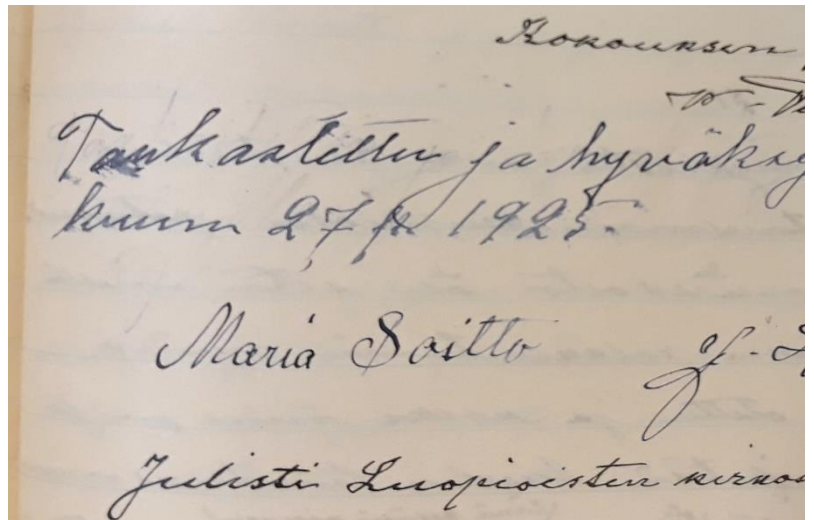 Kokouksen
Tarkastettu ja hyväksy
kuun 27 p. 1925.
Maria Soitto J.
Julisti Luopioisten kirkos